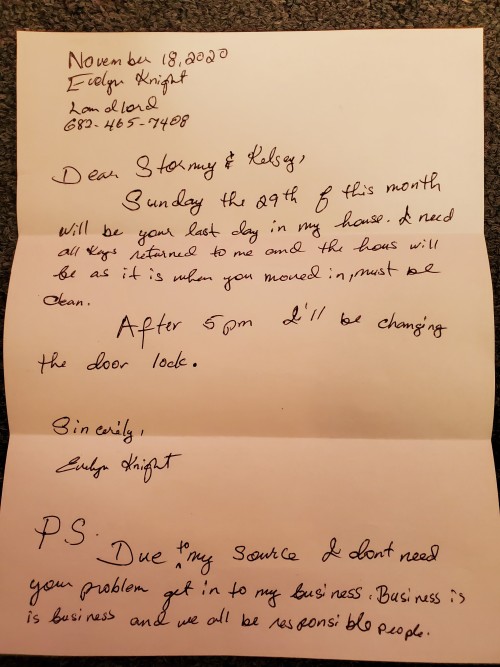 November 18, 2020
Evelyn Knight
Landlord
682-465-7408
Dear Stormy & Kelsey,
Sunday the 29th of this month
will be your last day in my house. I need
all keys returned to me and the hous will
be as it is when you moved in, must be
clean.
After 5pm I'll be changing
the door lock.
Sincerely,
Evelyn Knight
PS.
Due to my source I dont need
your problem get in to my business. Business is
is business and we all be responsible people.